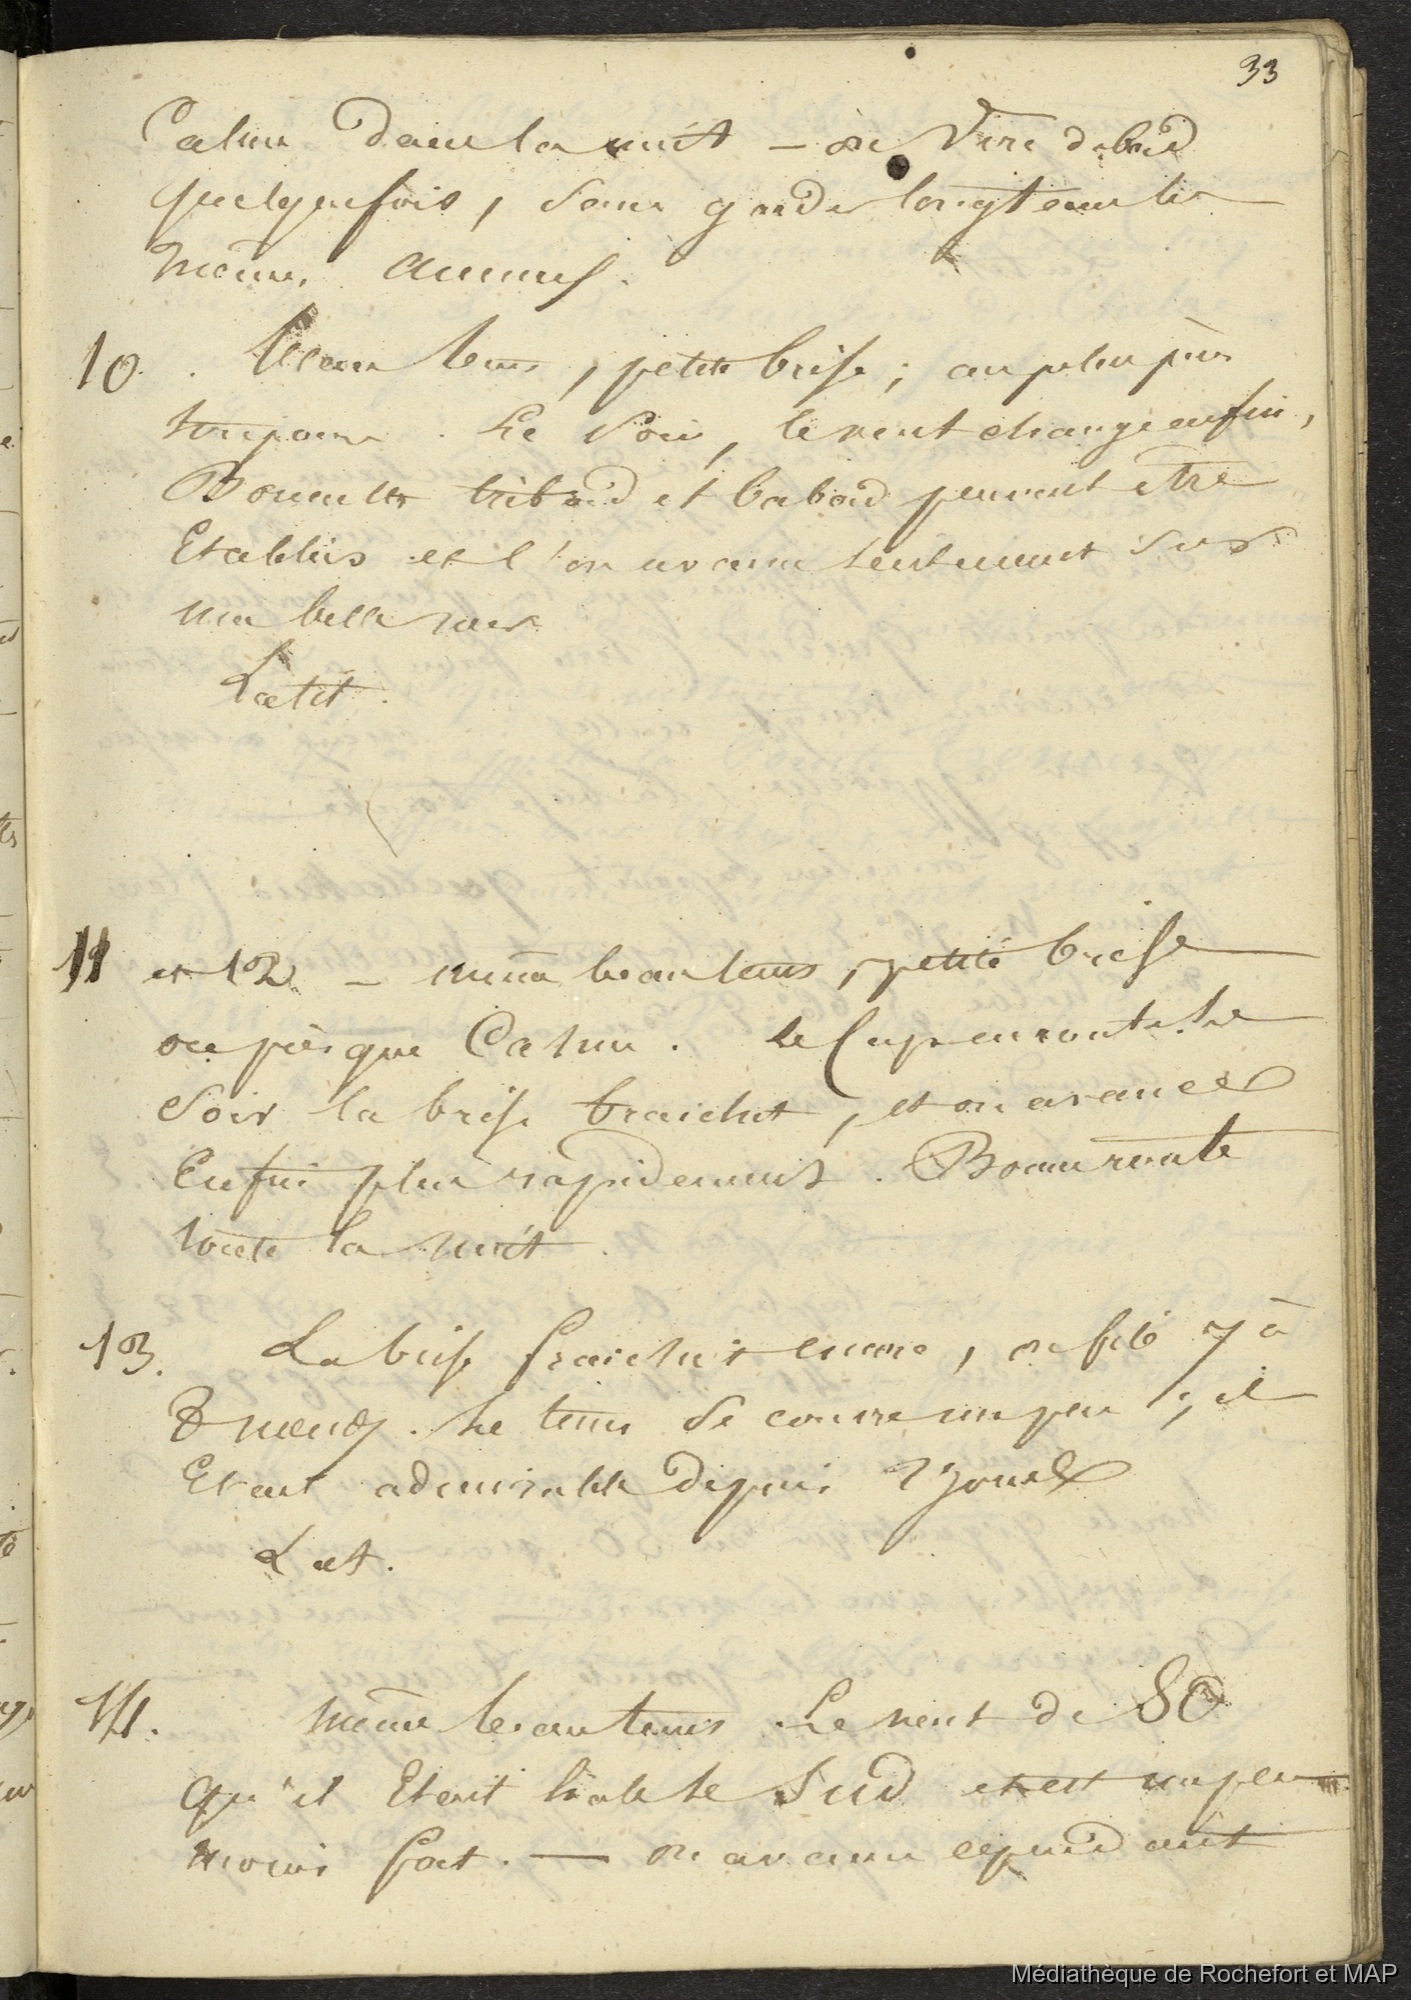 33
Calme dans la nuit – on vire de bord
quelquefois, sans garder longtems les
mêmes amures.
10. Beau tems, petite brise; au plus près
toujours. Le soir, le vent change enfin,
Bonnettes tribord et babord peuvent être
Etablies et l'on avance lentement sur
une belle mer.
Latit.
11 et 12. – même beau tems, petite brise
ou presque Calme. le Cap en route. Le
Soir la brise fraichit, et on avance
Enfin plus rapidement. Bonne route
toute la nuit.
13. La brise fraichit encore, on file 7 à
8 nœuds. Le tems se couvre un peu; il
Etait admirable depuis 2 jours
Lat.
14. même beau tems. Le vent de SO
qu'il Etait hale le Sud et est un peu
moins fort. — on avance cependant
Médiathèque de Rochefort et MAP